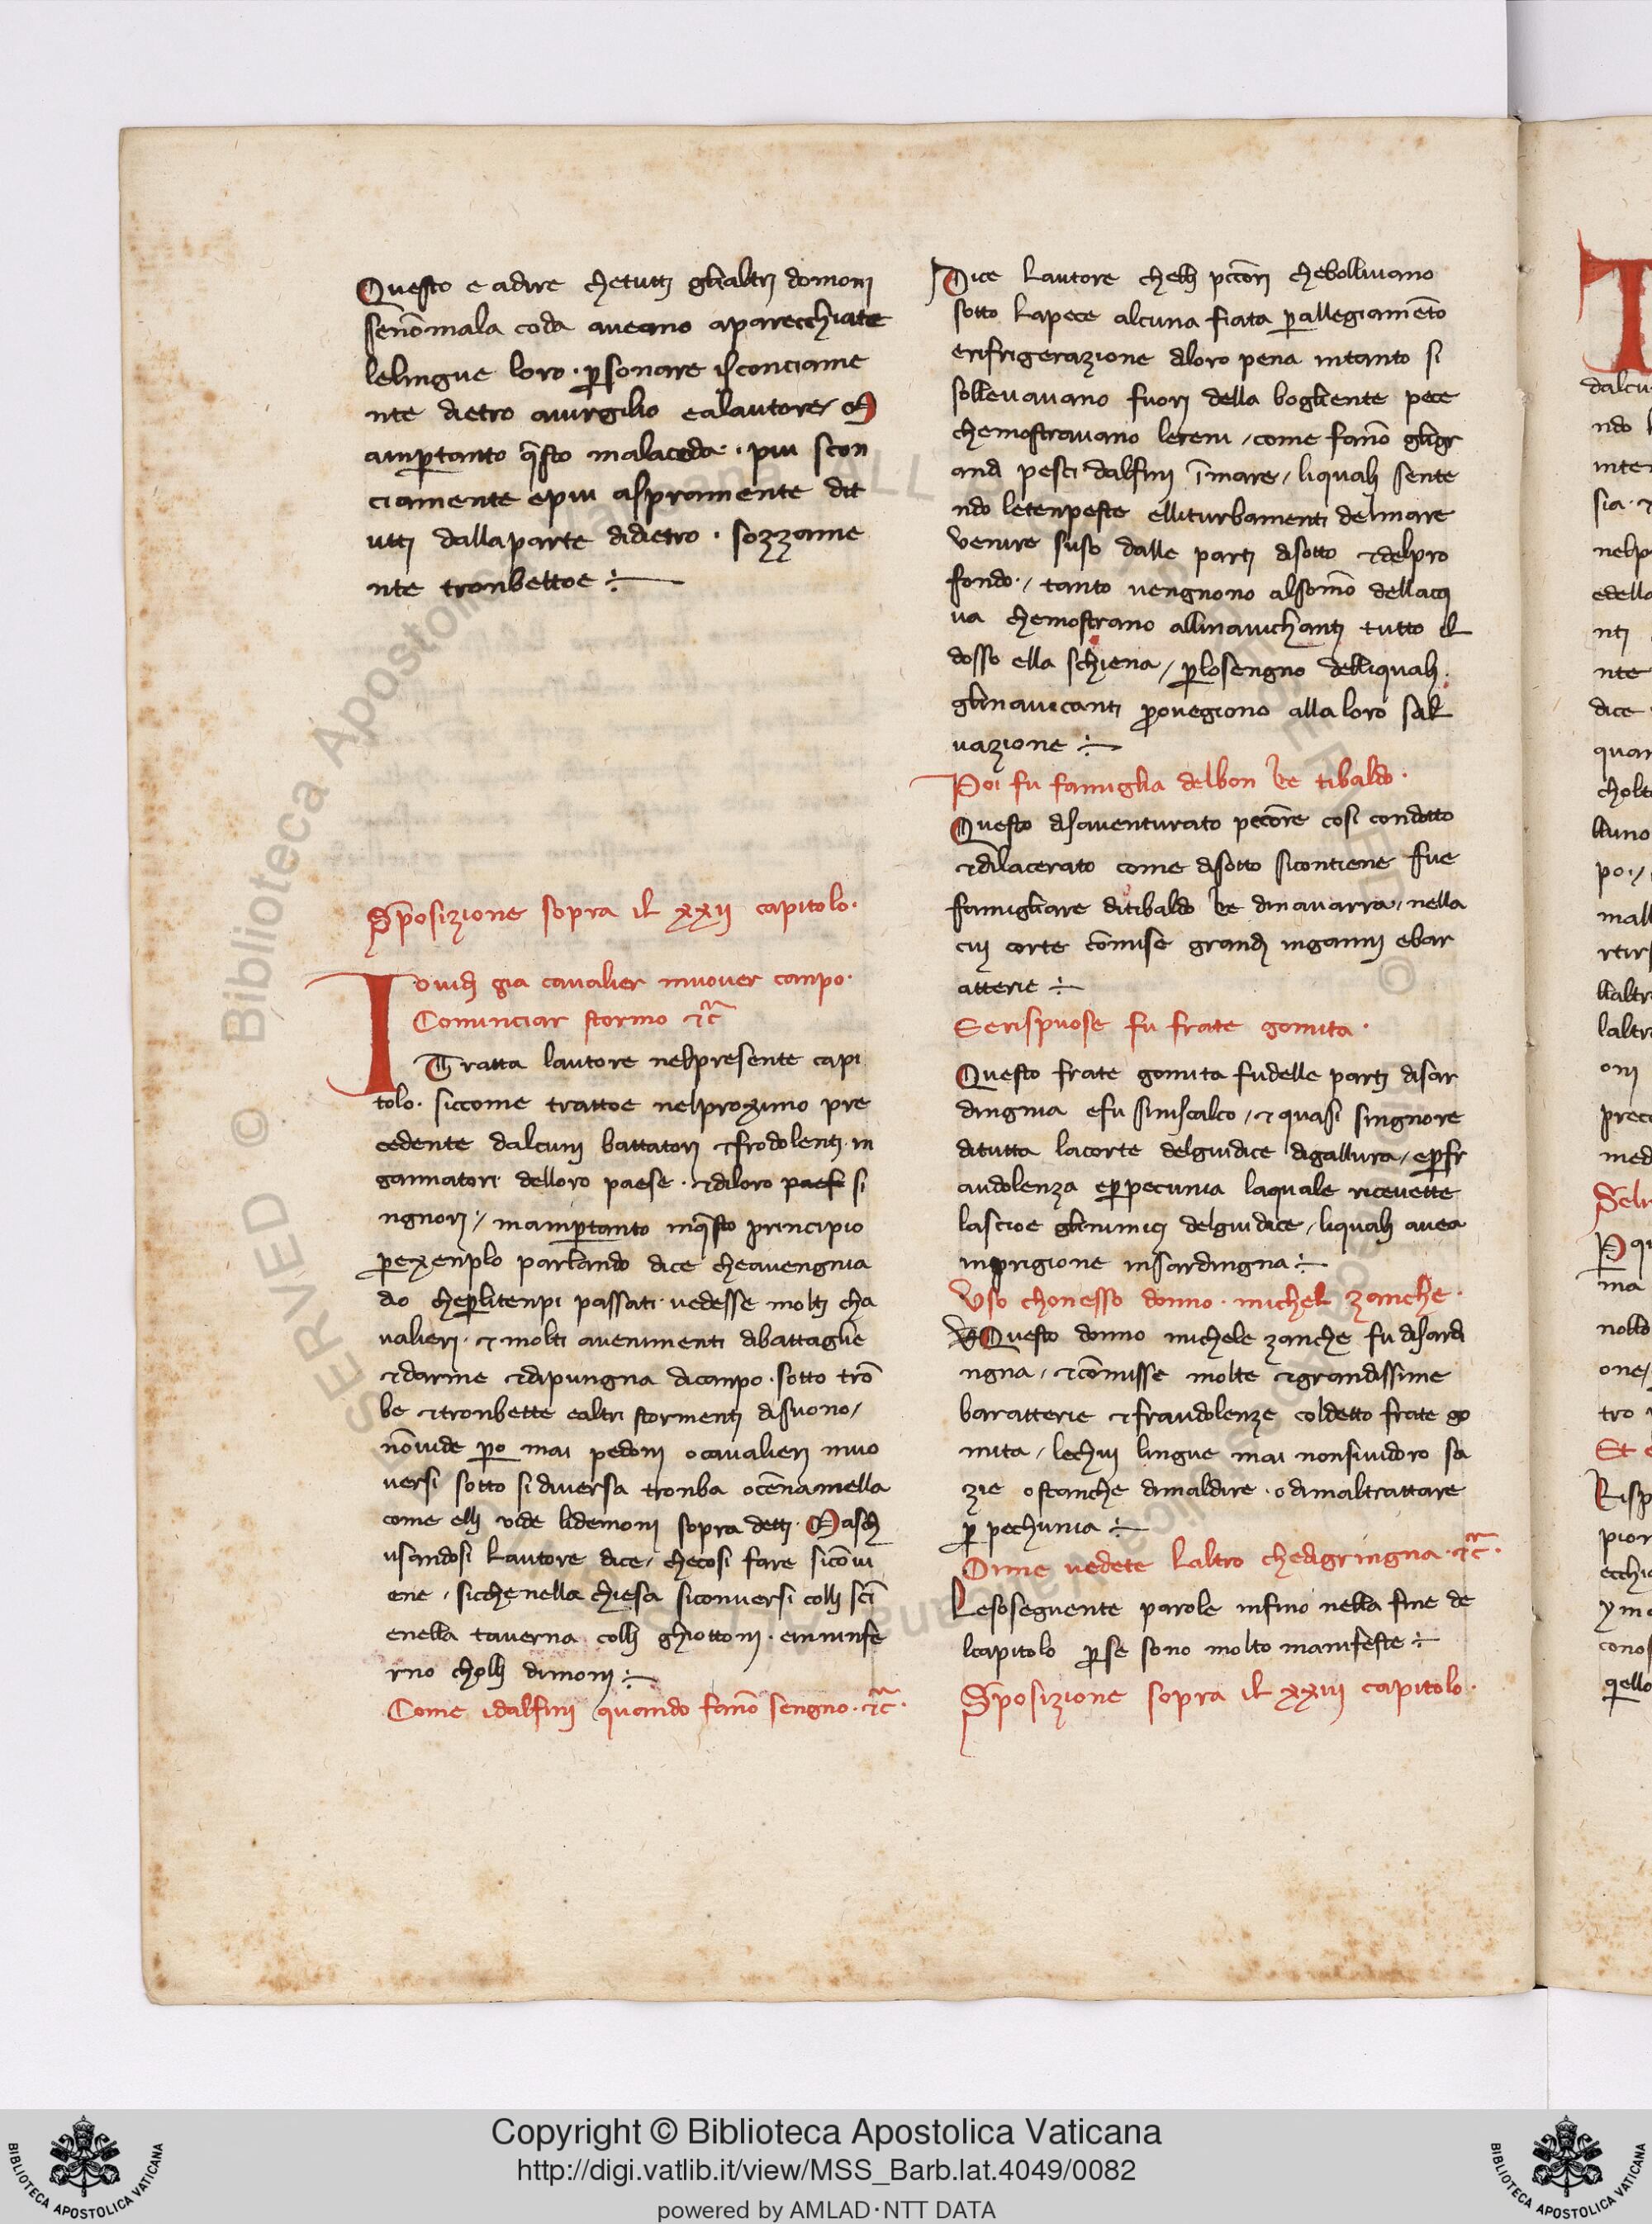 Questo e adire chetutti glialtri domonj
senōmala coda aueano aparecchiate
lelingue loro · ꝑsonare isconciame
nte dietro auirgilio ealautore M
aimꝑtanto q̄sto malacoda · piu scon
ciamente epiu aspramente dit
utti dallaparte didietro · sozzame
nte tronbettoe ÷
Sposizione sopra il xxij capitolo ·
Iouidj gia caualier muouer canpo ·
Cominciar stormo ⁊c̃
Tratta lautore nelpresente capi
tolo · siccome trattoe nelproximo pre
cedente dalcunj battatorj ⁊frodolentj in
gannatori delloro paese · ⁊diloro paese si
ngnorj / maimꝑtanto inq̄sto principio
ꝑexenplo parlando dice cheauengnia
dio cheꝑlitenpi passati · uedesse moltj cha
ualieri · ⁊ molti auenimenti dibattaglie
⁊darme ⁊dipungna dicanpo · sotto trō
be ⁊tronbette ealtri stormentj disuono /
nōuide ꝑo mai pedonj ocaualierj muo
uersi sotto sidiuersa tronba ocēnamella
come ellj vide lidemonj sopra dettj · Masch
usandosi Lautore dice / checosi fare sicōui
ene / sicchenella chiesa siconuersi collj scī
enella tauerna collj ghiottonj · eininfe
rno chollj dimonj ÷
Come idalfinj quando fanō sengno · ⁊c̃ ·
Dice Lautore chelli pccōrj chebolliuano
sotto Lapece alcuna fiata ꝑallegiamēto
erifrigerazione diloro pena intanto si
solleuauano fuorj della bogliente pece
chemostrauano lereni / come fanō gligr
andj pesci dalfinj īmare / liqualj sente
ndo letenpeste elliturbamenti delmare
venire suso dalle partj disotto ⁊delpro
fondo · / tanto uengnono alsomō dellacq
ua chemostrano allinauichantj tutto il
dosso ella schiena / ꝑlosengno delliqualj ·
glinauicantj prouegiono alla loro sal
uazione ÷
Poi fu famiglia delbon Re tibaldo ·
Questo disauenturato peccōre cosi condotto
⁊dilacerato come disotto sicontiene fue
famigliare ditibaldo Re dinauarra / nella
cuj corte cōmise grandj ingannj ebar
atterie ÷
Serispuose fu frate gomita ·
Questo frate gomita fudelle partj disar
dingnia efu siniscalco / ⁊ quasi singnore
ditutta lacorte delguidice digallura / eꝑfr
audolenza eꝑpecunia laquale riceuette
lascioe glinimicj delguidice / liqualj auea
inprigione insardingna ÷
Vso chonesso donno · michel zanche ·
Questo donno michele zanche fu disardi
ngna / ⁊cōmisse molte ⁊grandissime
baratterie ⁊fraudolenze coldetto frate go
mita / lechuj lingue mai nonsiuidoro sa
zie ostanche dimaldire · odimaltrattare
ꝑ pechunia ÷
Omme uedete Laltro chedigringna · ⁊c̃ ·
Lesoseguente parole infino nella fine de
lcapitolo ꝑse sono molto manifeste ÷
Sposizione sopra il xxiij capitolo ·
Copyright © Biblioteca Apostolica Vaticana
http://digi.vatlib.it/view/MSS_Barb.lat.4049/0082
powered by AMLAD·NTT DATA